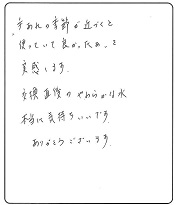 手あれの季節が近づくと
使っていて良かったぁ。と
実感します。
交換直後のやわらかな水
本当に気持ちいいです。
ありがとうございます。